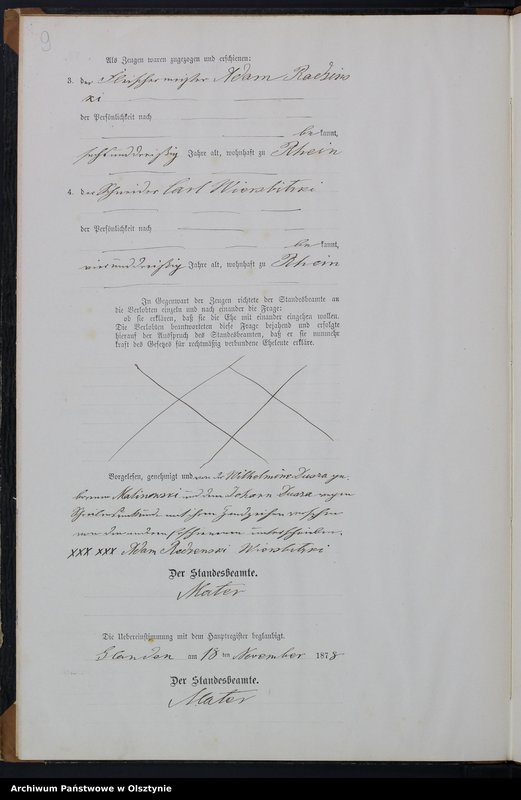 9
Als Zeugen waren zugezogen und erschienen:
3. der Fleischermeister Adam Radzins
ki
der Persönlichkeit nach
be kannt,
sechsunddreißig Jahre alt, wohnhaft zu Rhein
4. der Schneider Carl Wiersbitzki
der Persönlichkeit nach
be kannt,
vierunddreißig Jahre alt, wohnhaft zu Rhein
In Gegenwart der Zeugen richtete der Standesbeamte an
die Verlobten einzeln und nach einander die Frage:
ob sie erklären, daß sie die Ehe mit einander eingehen wollen.
Die Verlobten beantworteten diese Frage bejahend und erfolgte
hierauf der Ausspruch des Standesbeamten, daß er sie nunmehr
kraft des Gesetzes für rechtmäßig verbundene Eheleute erkläre.
Vorgelesen, genehmigt und von der Wilhelmine Duzza ge-
borenen Malinowski und dem Johann Duzza wegen
Schreibensunkunde mit ihren Handzeichen versehen
von den anderen Erschienenen unterschrieben.
XXX XXX Adam Radzenski Wiersbitzki
Der Standesbeamte.
Mater
Die Uebereinstimmung mit dem Hauptregister beglaubigt.
am 18 ten November 1878
Der Standesbeamte.
Mater
Archiwum Państwowe w Olsztynie